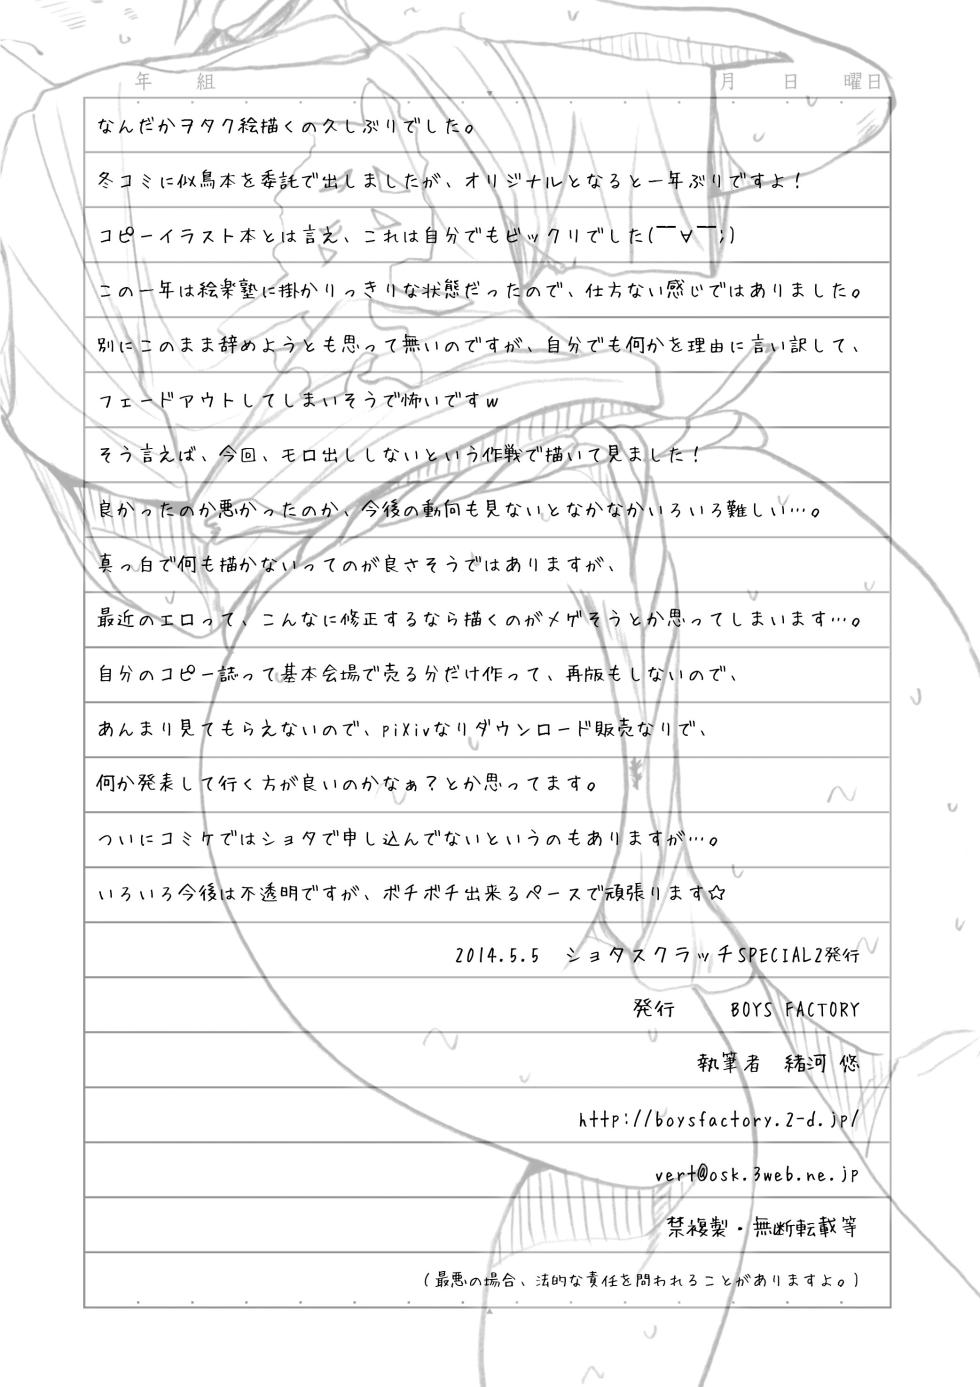 年 組 月 日 曜日
なんだかヲタク絵描くの久しぶりでした。
冬コミに似鳥本を委託で出しましたが、オリジナルとなると一年ぶりですよ！
コピーイラスト本とは言え、これは自分でもビックリでした(￣∀￣;)
この一年は絵楽塾に掛かりっきりな状態だったので、仕方ない感じではありました。
別にこのまま辞めようとも思って無いのですが、自分でも何かを理由に言い訳して、
フェードアウトしてしまいそうで怖いですｗ
そう言えば、今回、モロ出ししないという作戦で描いて見ました！
良かったのか悪かったのか、今後の動向も見ないとなかなかいろいろ難しい…。
真っ白で何も描かないってのが良さそうではありますが、
最近のエロって、こんなに修正するなら描くのがメゲそうとか思ってしまいます…。
自分のコピー誌って基本会場で売る分だけ作って、再版もしないので、
あんまり見てもらえないので、piXivなりダウンロード販売なりで、
何か発表して行く方が良いのかなぁ？とか思ってます。
ついにコミケではショタで申し込んでないというのもありますが…。
いろいろ今後は不透明ですが、ボチボチ出来るペースで頑張ります☆
2014.5.5　ショタスクラッチSPECIAL2発行
発行　　BOYS FACTORY
執筆者　緒河 悠
http://boysfactory.2-d.jp/
vert@osk.3web.ne.jp
禁複製・無断転載等
（最悪の場合、法的な責任を問われることがありますよ。）